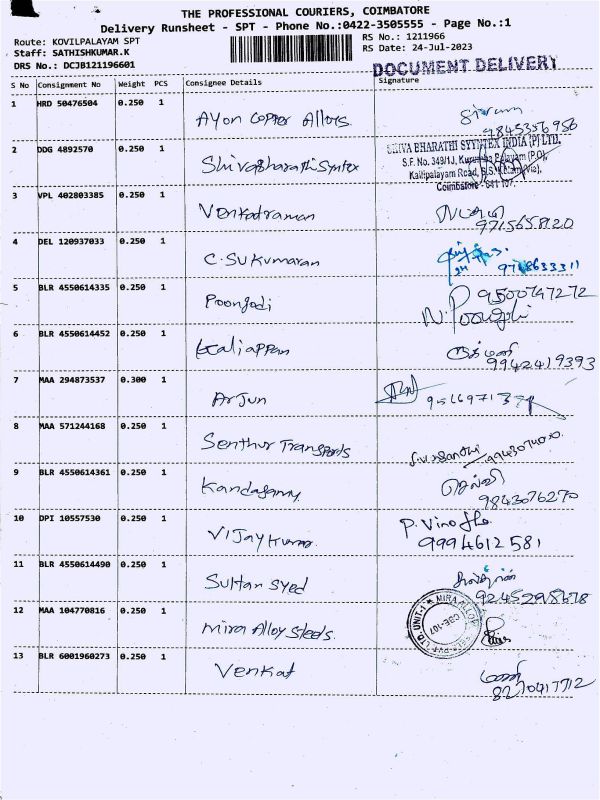 THE PROFESSIONAL COURIERS, COIMBATORE
Delivery Runsheet - SPT - Phone No.:0422-3505555 - Page No.:1
Route: KOVILPALAYAM SPT
Staff: SATHISHKUMAR.K
DRS No.: DCJB121196601
RS No.: 1211966
RS Date: 24-Jul-2023
DOCUMENT DELIVERY
S No Consignment No Weight PCS Consignee Details Signature
1 HRD 50476504 0.250 1 Ayon Copper Alloys
9845356956
2 DDG 4892570 0.250 1 Shivabharathi Syntex
SHIVA BHARATHI SYNTEX INDIA (P) LTD,
S.F. No. 349/1J, Palayam (P.O),
Kallipalayam Road, S.S. Kulam (Via),
Coimbatore - 641 107.
3 VPL 402803385 0.250 1 Venkatraman
9715658120
4 DEL 120937033 0.250 1 C. Sukumaran
5 BLR 4550614335 0.250 1 Poongodi
9500747272
N. Poongodi
6 BLR 4550614452 0.250 1 Kaliappan
9942419393
7 MAA 294873537 0.300 1 Arjun
8 MAA 571244168 0.250 1 Senthur Transports
9 BLR 4550614361 0.250 1 Kandasamy
செல்வி
9843076270
10 DPI 10557530 0.250 1 Vijay Kumar.
P. Vinoth
9994612581
11 BLR 4550614490 0.250 1 Sultan Syed
9245298678
12 MAA 104770816 0.250 1 Mira Alloy Steels.
MIRA ALLOY PVT LTD. UNIT-1
CBE-107
13 BLR 6001960273 0.250 1 Venkat
8270417712